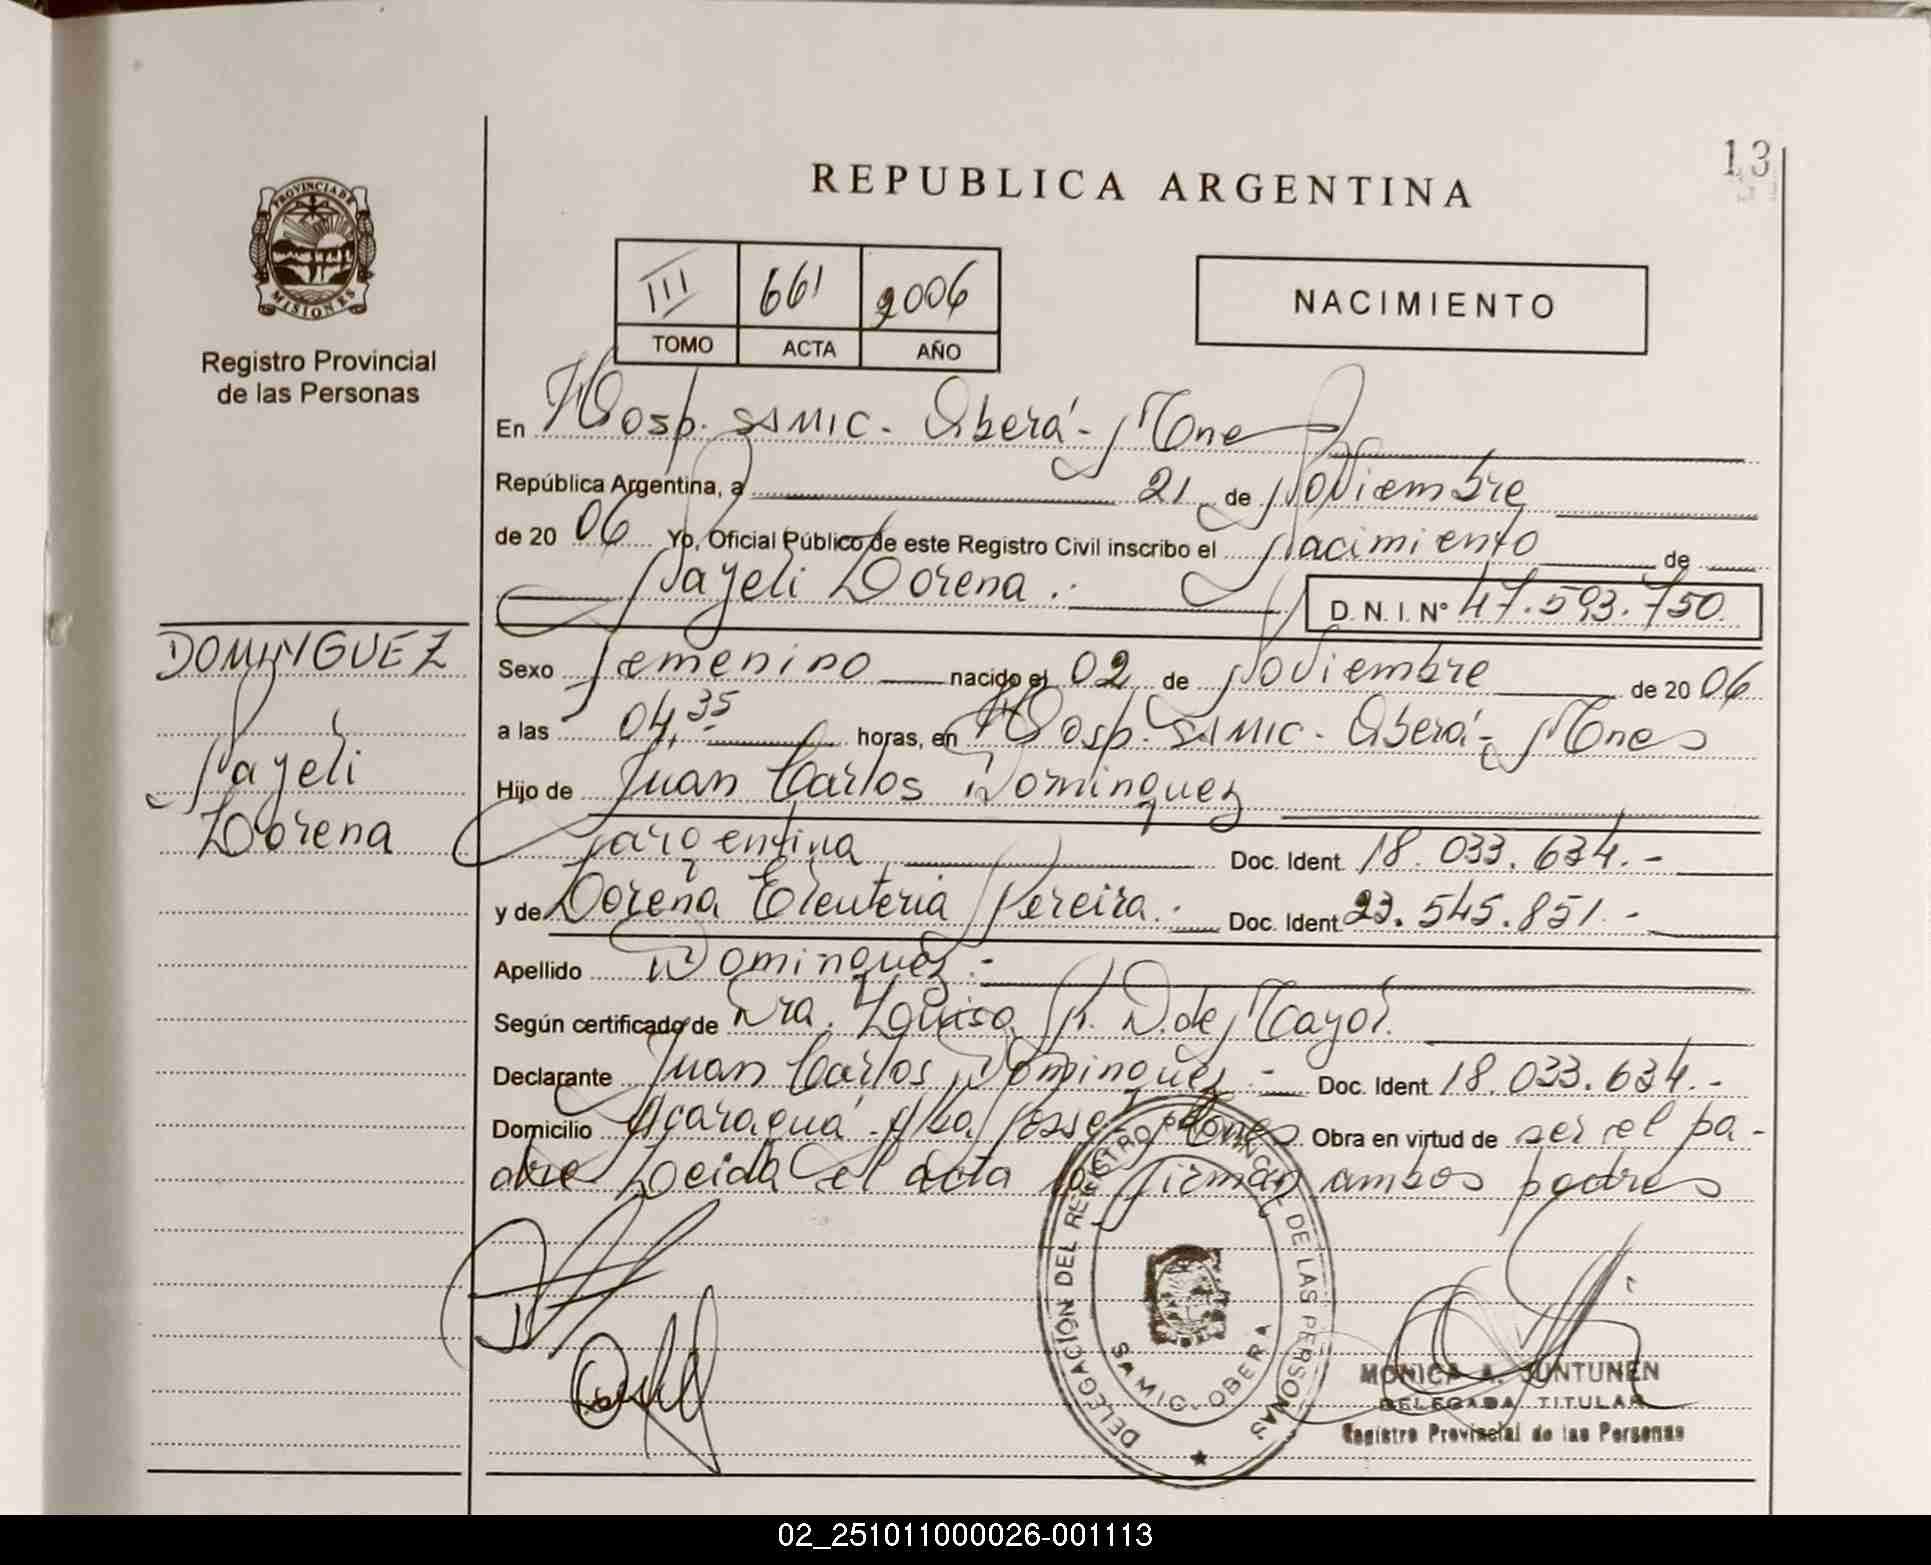 13
REPUBLICA ARGENTINA
PROVINCIA DE MISIONES
Registro Provincial
de las Personas
III 661 2006
TOMO ACTA AÑO
NACIMIENTO
En Hosp. SAMIC - Oberá - Mnes
República Argentina, a 21 de Noviembre
de 20 06 Yo, Oficial Público de este Registro Civil inscribo el Nacimiento de
Nayeli Lorena .- D.N.I. Nº 47.593.750.
DOMINGUEZ
Nayeli
Lorena
Sexo Femenino nacido el 02 de Noviembre de 20 06
a las 04,35 horas, en Hosp. SAMIC - Oberá - Mnes
Hijo de Juan Carlos Dominguez
argentina Doc. Ident. 18.033.634.-
y de Lorena Eleuteria Pereira.- Doc. Ident. 23.545.851.-
Apellido Dominguez.-
Según certificado de Dra. R. D. de Mayol.
Declarante Juan Carlos Dominguez.- Doc. Ident. 18.033.634.-
Domicilio Acaraguá - Alba Posse - Mnes Obra en virtud de ser el pa-
dre Leida el acta la firman ambos padres
DELEGACION DEL REGISTRO PROVINCIAL DE LAS PERSONAS
SAMIC - OBERA
MONICA A. JUNTUNEN
DELEGADA TITULAR
Registro Provincial de las Personas
02_251011000026-001113